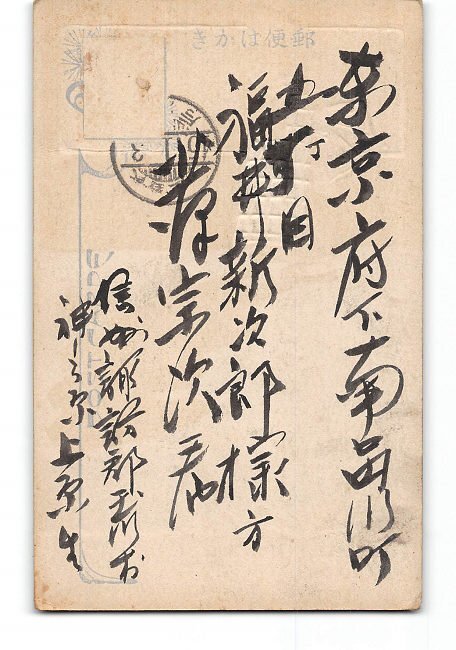 郵便はかき
東京府下南品川町
五丁目
福井新次郎様方
宗次君
信州諏訪郡玉川村
神之原上原生